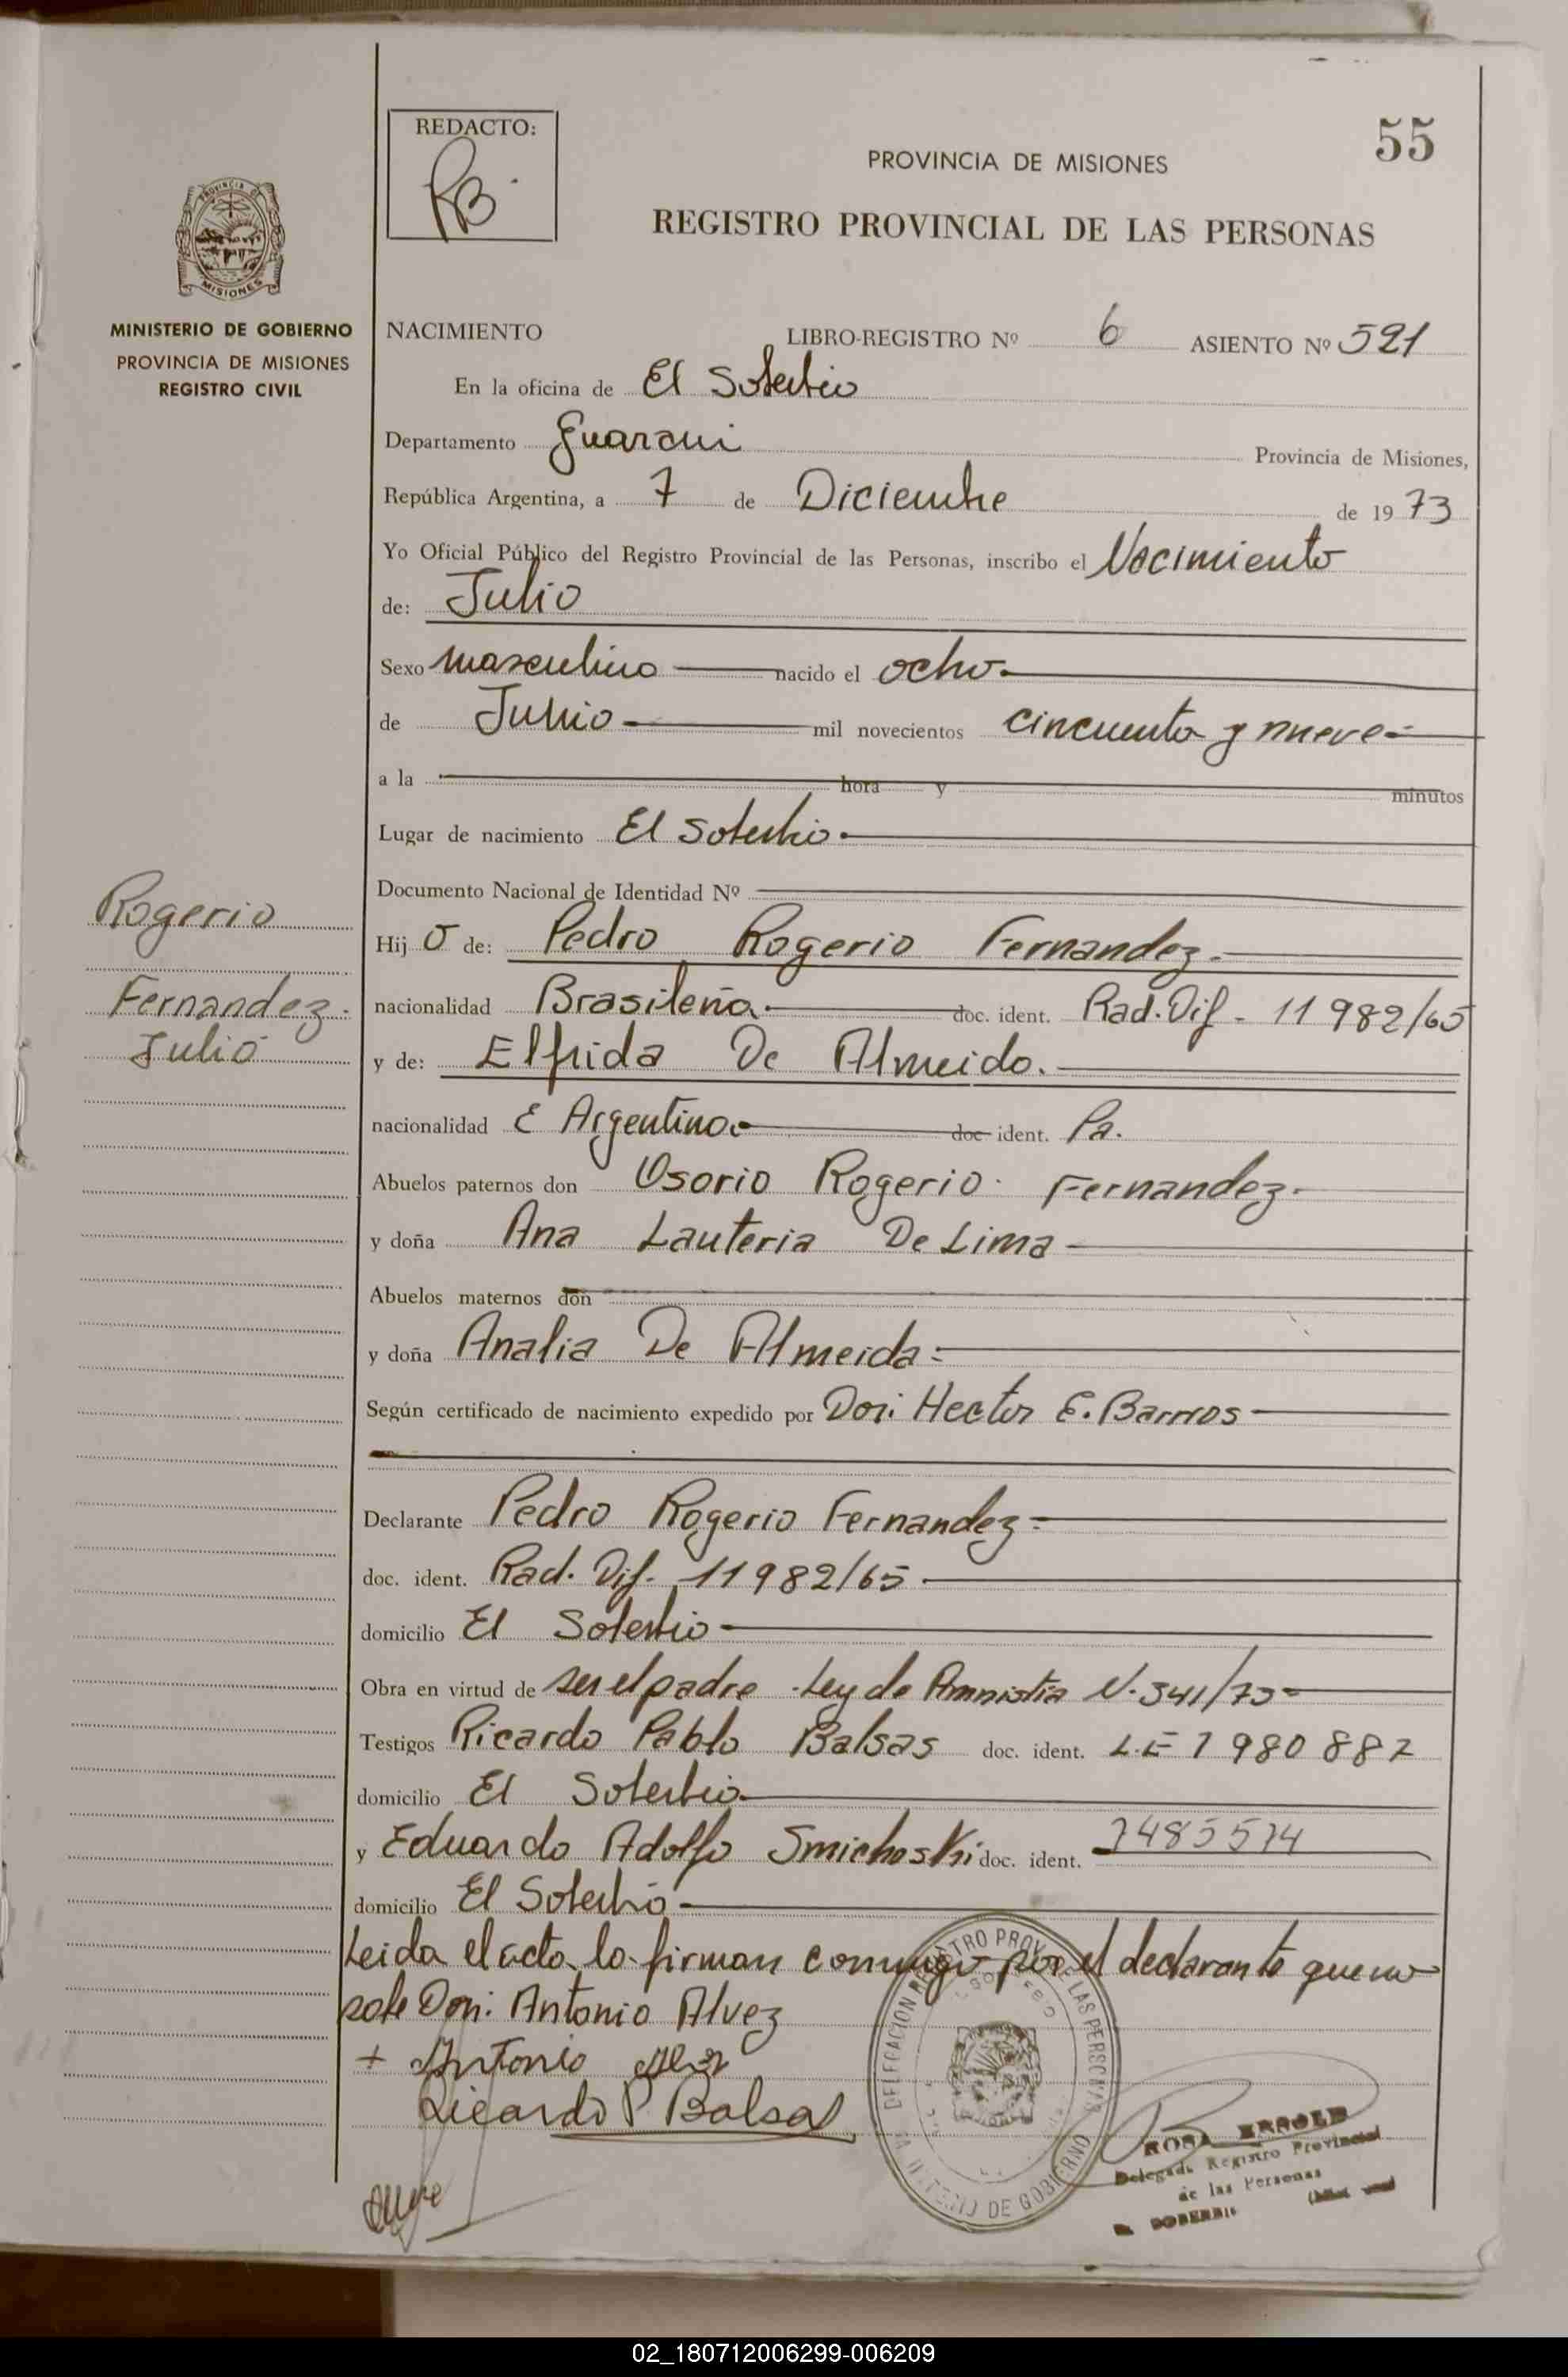 55
REDACTO:
RB.
PROVINCIA DE MISIONES
REGISTRO PROVINCIAL DE LAS PERSONAS
PROVINCIA DE
MISIONES
MINISTERIO DE GOBIERNO
PROVINCIA DE MISIONES
REGISTRO CIVIL
NACIMIENTO LIBRO-REGISTRO Nº 6 ASIENTO Nº 521
En la oficina de El Soberbio
Departamento Guarani Provincia de Misiones,
República Argentina, a 7 de Diciembre de 1973
Yo Oficial Público del Registro Provincial de las Personas, inscribo el Nacimiento
de: Julio
Sexo masculino nacido el ocho
de Junio mil novecientos cincuenta y nueve
a la hora y minutos
Lugar de nacimiento El Soberbio
Documento Nacional de Identidad Nº
Rogerio
Fernandez
Julio
Hijo de: Pedro Rogerio Fernandez
nacionalidad Brasileña doc. ident. Rad. Dif. 11982/65
y de: Elfrida De Almeida
nacionalidad Argentina doc. ident. Pa.
Abuelos paternos don Osorio Rogerio Fernandez
y doña Ana Lauteria De Lima
Abuelos maternos don
y doña Analia De Almeida
Según certificado de nacimiento expedido por Don: Hector E. Barrios
Declarante Pedro Rogerio Fernandez
doc. ident. Rad. Dif. 11982/65
domicilio El Soberbio
Obra en virtud de ser el padre Ley de Amnistia N. 341/73
Testigos Ricardo Pablo Balsas doc. ident. L.E 7980882
domicilio El Soberbio
y Eduardo Adolfo Smichoski doc. ident. 7485574
domicilio El Soberbio
Leida el acta, lo firman conmigo por el declarante que no
sabe Don: Antonio Alvez
+ Antonio Alvez
Ricardo P. Balsas
DELEGACION REGISTRO PROV. DE LAS PERSONAS
MINISTERIO DE GOBIERNO
ROSA
Delegada Registro Provincial
de las Personas
EL SOBERBIO
02_180712006299-006209